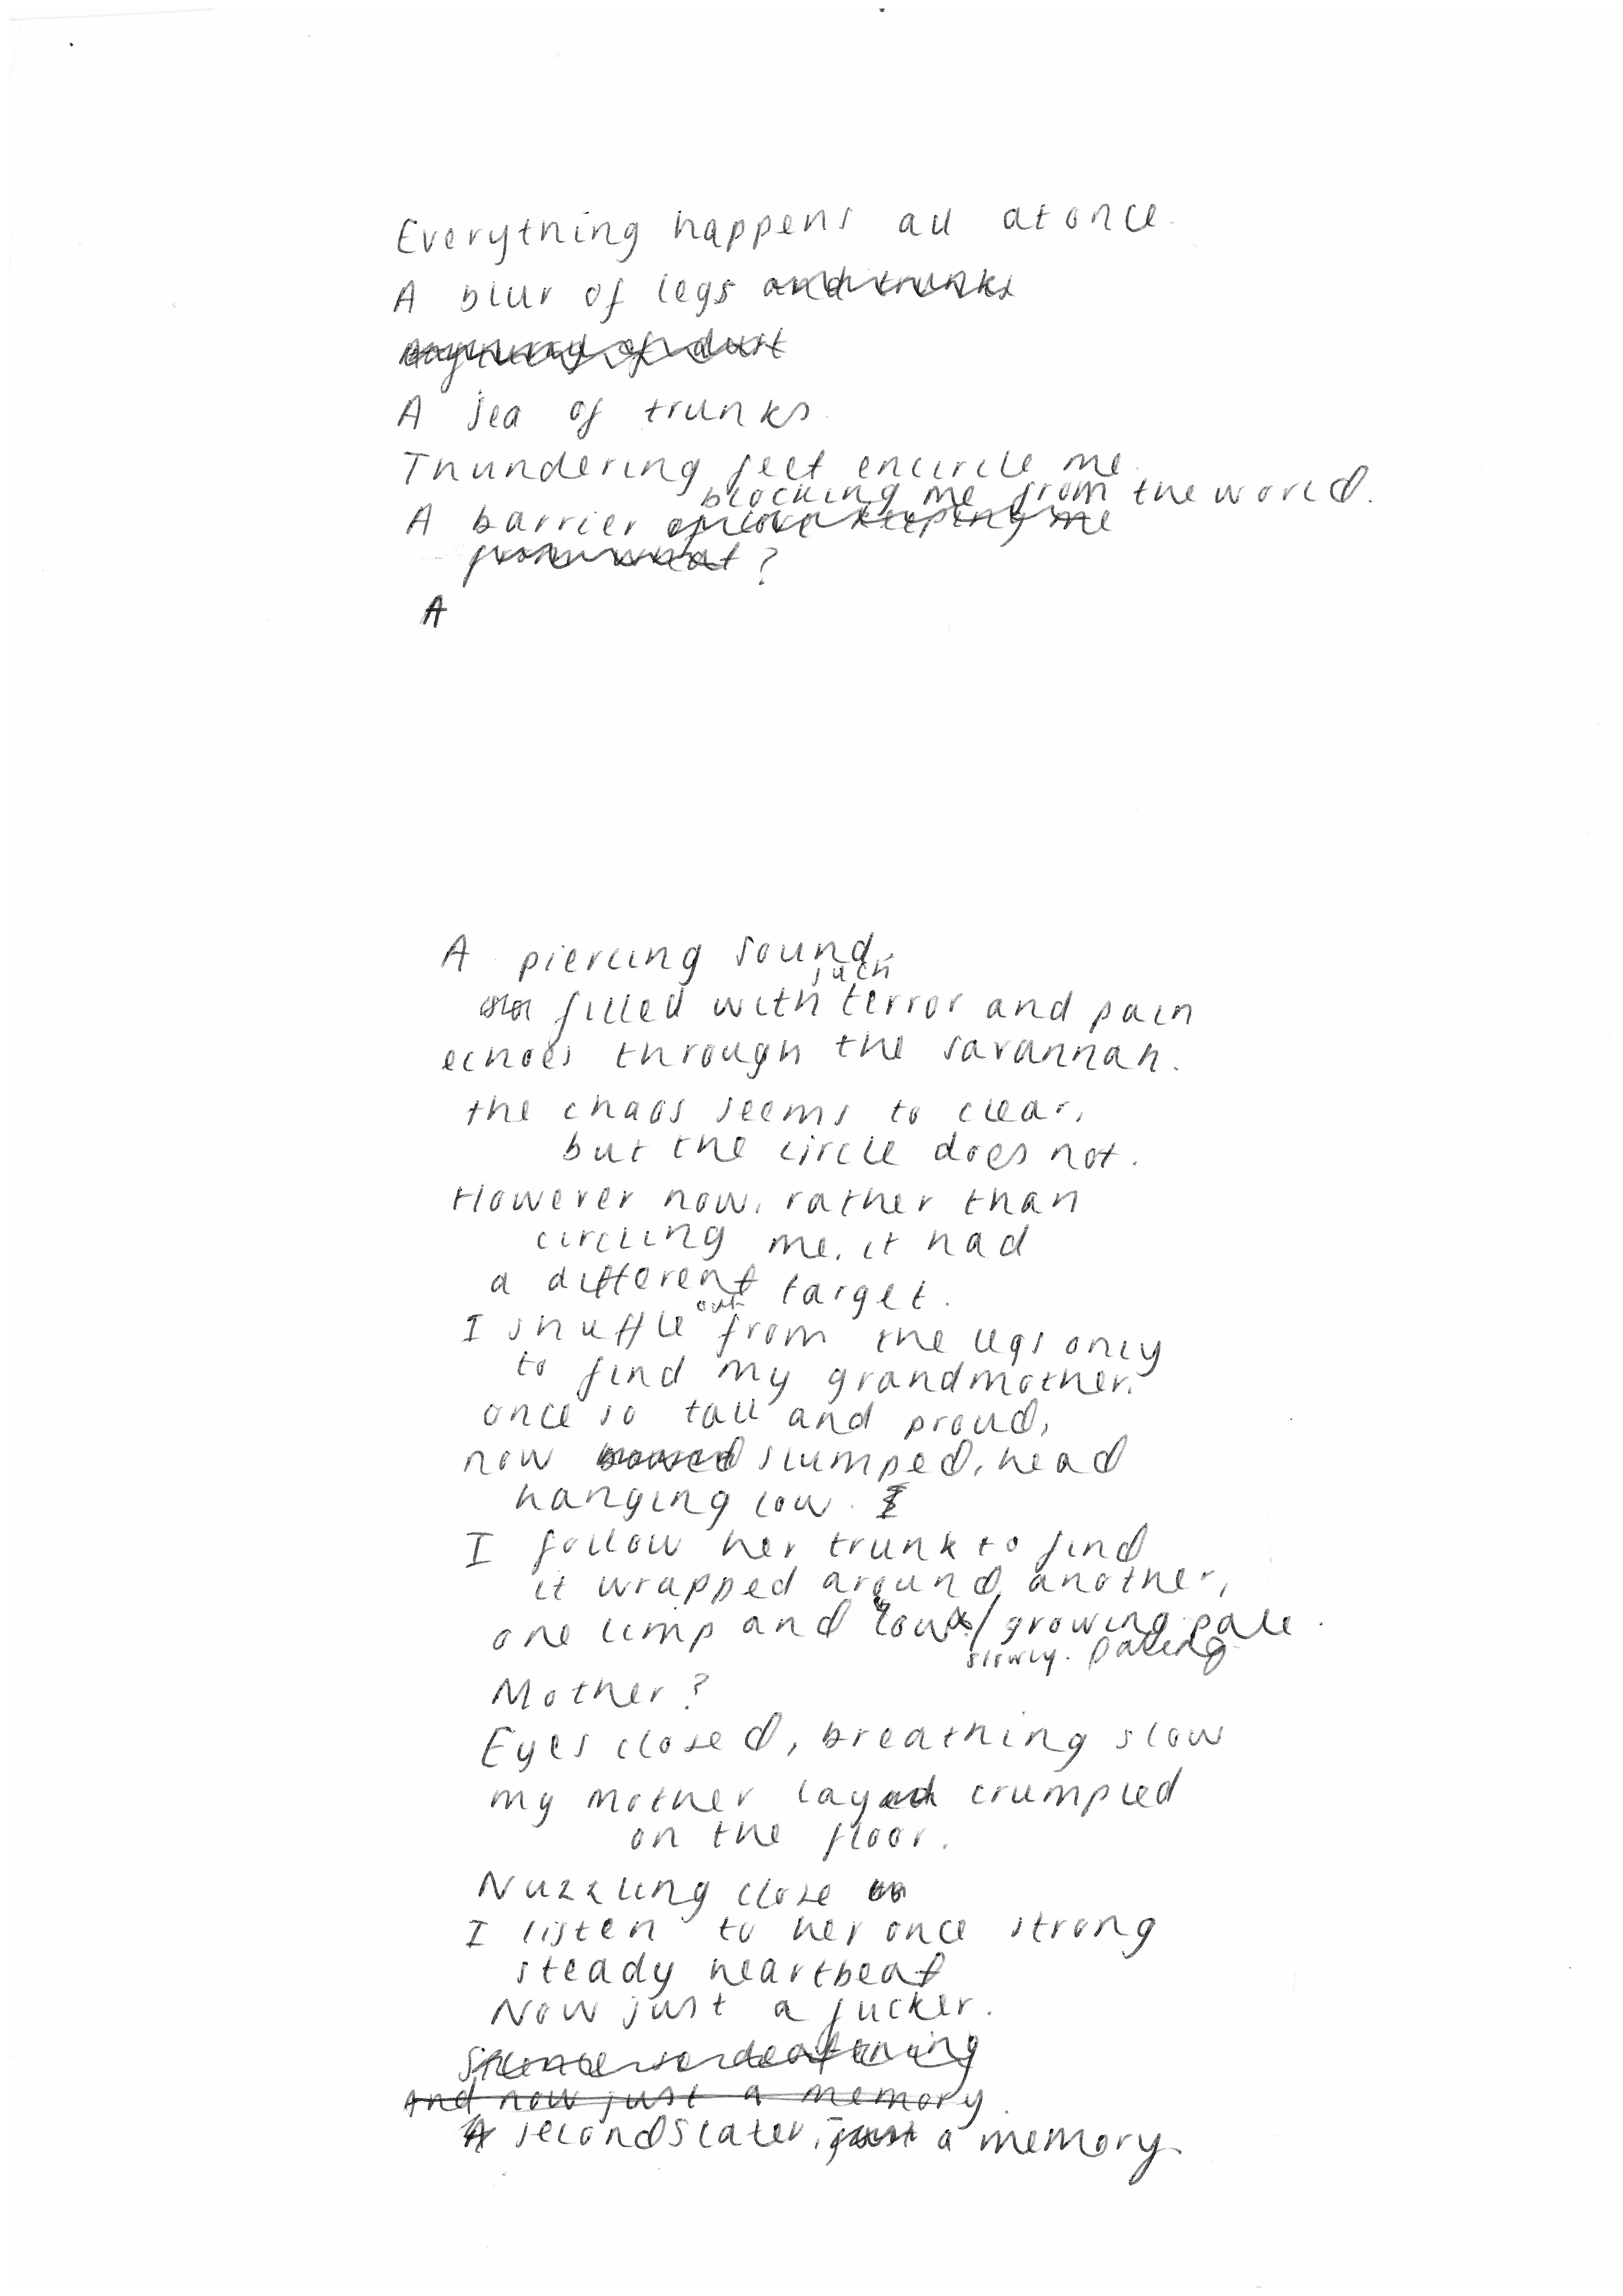 Everything happens all at once.
A blur of legs and trunks
of dust
A sea of trunks.
Thundering feet encircle me.
blocking me from the world.
A barrier of love keeping me
from what?
A
A piercing sound,
such
filled with terror and pain
echoes through the savannah.
the chaos seems to clear,
but the circle does not.
However now, rather than
circling me, it had
a different target.
out
I shuffle from the legs only
to find my grandmother.
once so tall and proud,
now bowed slumped, head
hanging low. I
I follow her trunk to find
it wrapped around another,
one limp and low / growing pale.
slowly. paling
Mother?
Eyes closed, breathing slow
my mother lay crumpled
on the floor.
Nuzzling close
I listen to her once strong
steady heartbeat
Now just a flicker.
Silence so deafening
And now just a memory.
A seconds later, just a memory.